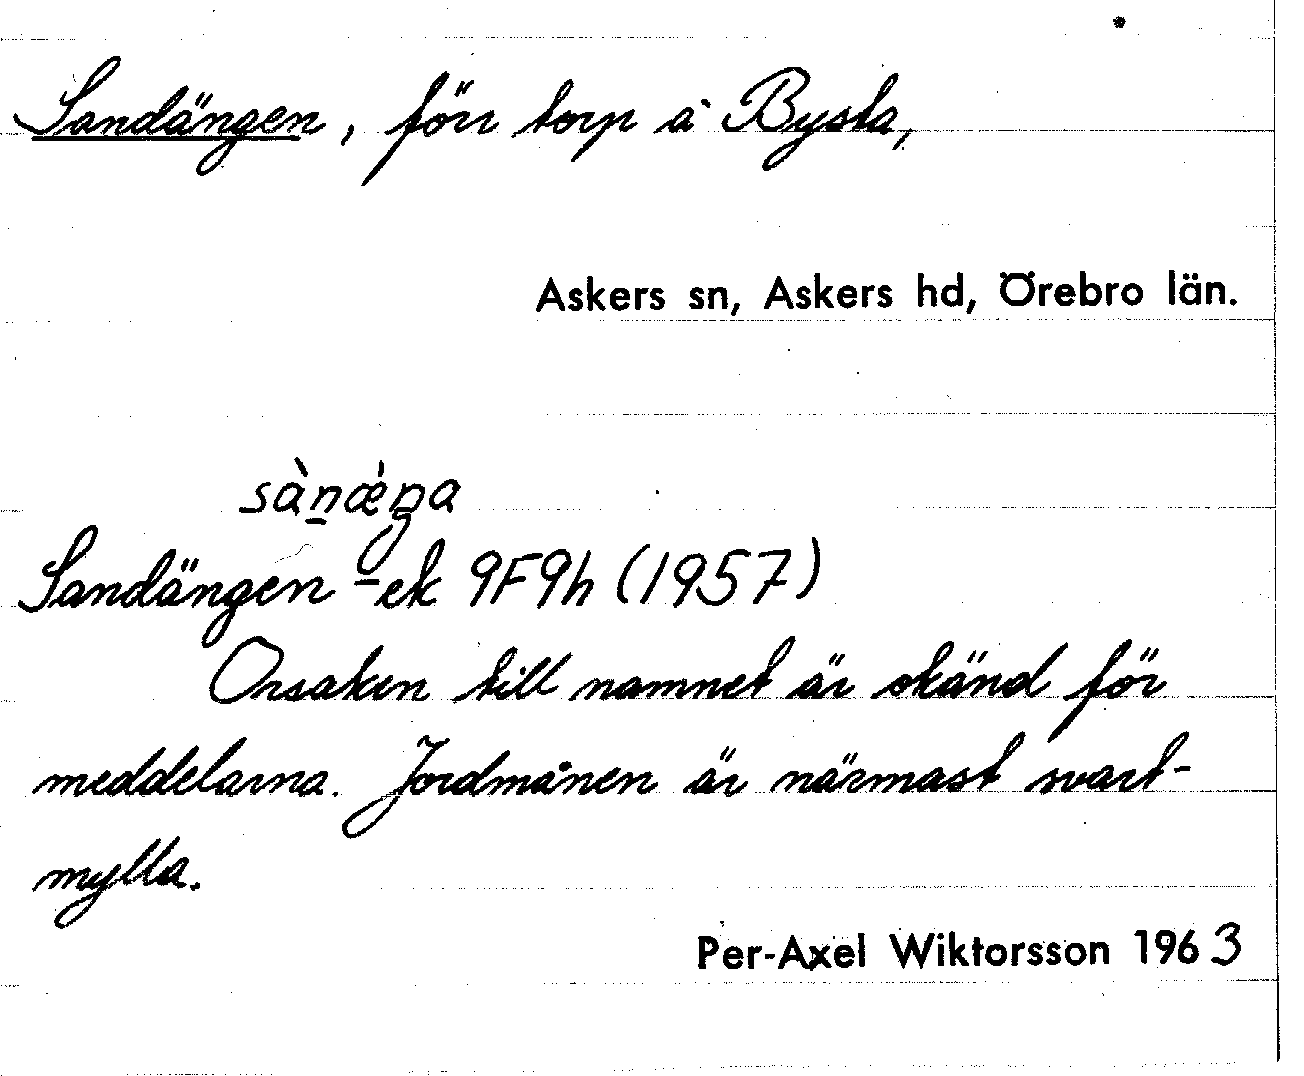 Sandängen, förr torp å Bysta,
Askers sn, Askers hd, Örebro län.
sàn̠ǽŋa
Sandängen -ek 9F9h (1957)
Orsaken till namnet är okänd för
meddelarna. Jordmånen är närmast svart-
mylla.
Per-Axel Wiktorsson 1963